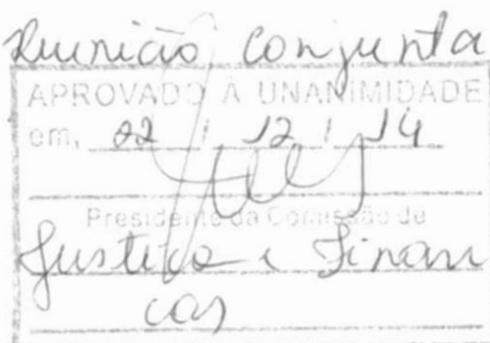 Reunião Conjunta
APROVADO À UNANIMIDADE
em, 22 / 12 / 14
Presidente da Comissão de
Justiça e Finan
ças